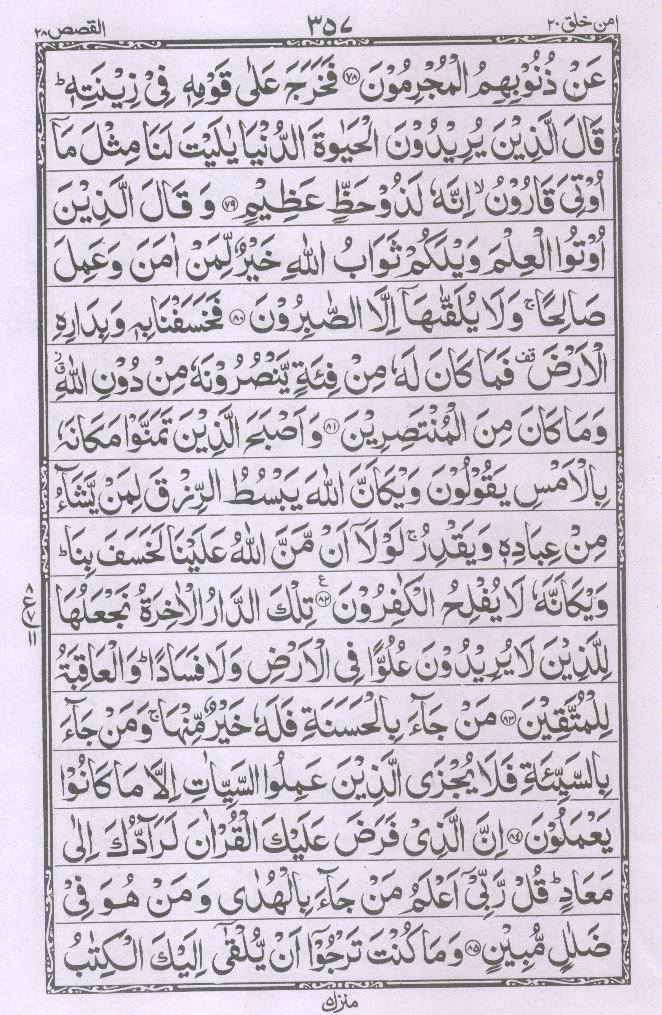 امن خلق ۲۰ ۳۵۷ القصص ۲۸
عَنْ ذُنُوْبِهِمُ الْمُجْرِمُوْنَ ﴿۷۸﴾ فَخَرَجَ عَلٰى قَوْمِهٖ فِيْ زِيْنَتِهٖ ؕ
قَالَ الَّذِيْنَ يُرِيْدُوْنَ الْحَيٰوةَ الدُّنْيَا يٰلَيْتَ لَنَا مِثْلَ مَاۤ
اُوْتِيَ قَارُوْنُ ۙ اِنَّهٗ لَذُوْ حَظٍّ عَظِيْمٍ ﴿۷۹﴾ وَ قَالَ الَّذِيْنَ
اُوْتُوا الْعِلْمَ وَيْلَكُمْ ثَوَابُ اللّٰهِ خَيْرٌ لِّمَنْ اٰمَنَ وَعَمِلَ
صَالِحًا ۚ وَلَا يُلَقّٰىهَاۤ اِلَّا الصّٰبِرُوْنَ ﴿۸۰﴾ فَخَسَفْنَا بِهٖ وَبِدَارِهِ
الْاَرْضَ ۫ فَمَا كَانَ لَهٗ مِنْ فِئَةٍ يَّنْصُرُوْنَهٗ مِنْ دُوْنِ اللّٰهِ ۗ
وَمَا كَانَ مِنَ الْمُنْتَصِرِيْنَ ﴿۸۱﴾ وَاَصْبَحَ الَّذِيْنَ تَمَنَّوْا مَكَانَهٗ
بِالْاَمْسِ يَقُوْلُوْنَ وَيْكَاَنَّ اللّٰهَ يَبْسُطُ الرِّزْقَ لِمَنْ يَّشَآءُ
مِنْ عِبَادِهٖ وَيَقْدِرُ ۚ لَوْلَاۤ اَنْ مَّنَّ اللّٰهُ عَلَيْنَا لَخَسَفَ بِنَا ؕ
وَيْكَاَنَّهٗ لَا يُفْلِحُ الْكٰفِرُوْنَ ﴿۸۲﴾ ع تِلْكَ الدَّارُ الْاٰخِرَةُ نَجْعَلُهَا
۸ ع ۷ ۱۱
لِلَّذِيْنَ لَا يُرِيْدُوْنَ عُلُوًّا فِي الْاَرْضِ وَلَا فَسَادًا ؕ وَالْعَاقِبَةُ
لِلْمُتَّقِيْنَ ﴿۸۳﴾ مَنْ جَآءَ بِالْحَسَنَةِ فَلَهٗ خَيْرٌ مِّنْهَا ۚ وَمَنْ جَآءَ
بِالسَّيِّئَةِ فَلَا يُجْزَى الَّذِيْنَ عَمِلُوا السَّيِّاٰتِ اِلَّا مَا كَانُوْا
يَعْمَلُوْنَ ﴿۸۴﴾ اِنَّ الَّذِيْ فَرَضَ عَلَيْكَ الْقُرْاٰنَ لَرَآدُّكَ اِلٰى
مَعَادٍ ؕ قُلْ رَّبِّيْۤ اَعْلَمُ مَنْ جَآءَ بِالْهُدٰى وَمَنْ هُوَ فِيْ
ضَلٰلٍ مُّبِيْنٍ ﴿۸۵﴾ وَمَا كُنْتَ تَرْجُوْۤا اَنْ يُّلْقٰۤى اِلَيْكَ الْكِتٰبُ
منزل